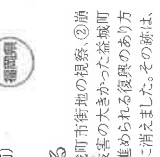 福岡県
る
町市街地の視察、②崩
被害の大きかった益城町
進められる復興のあり方
に消えました。その跡は、